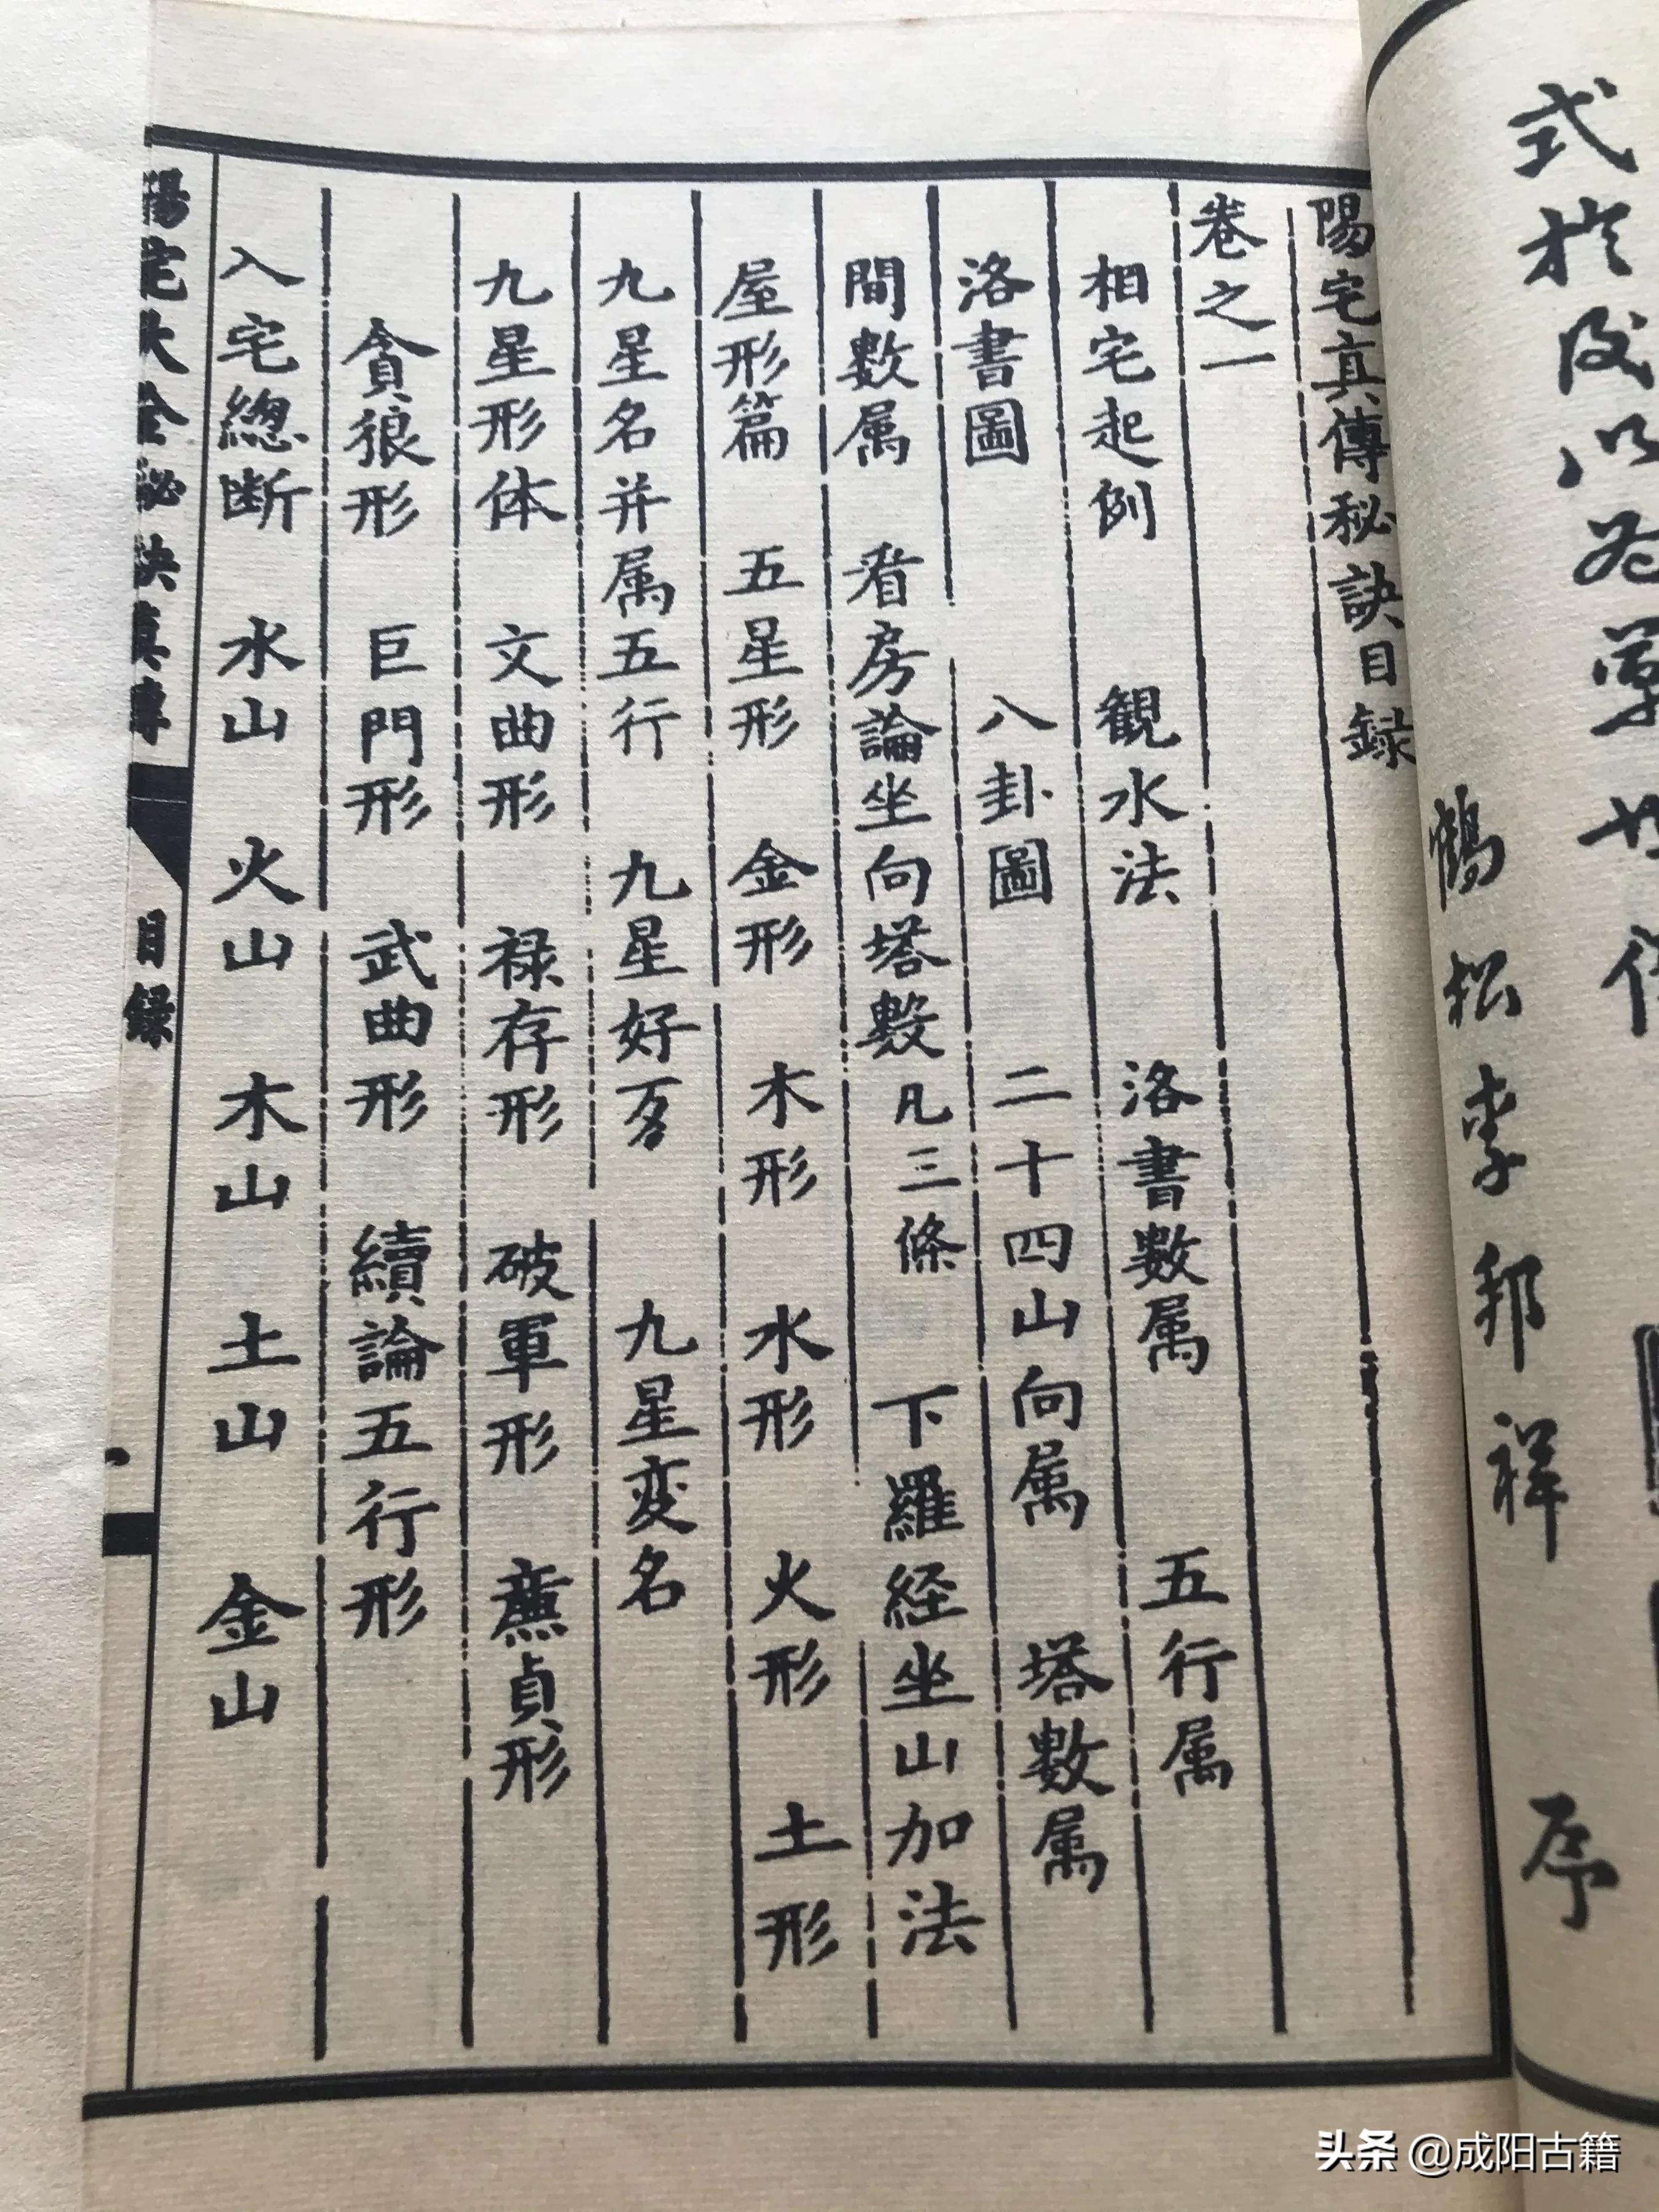 式於後以為
鶴松李邦祥 序
陽宅真傳秘訣目録
卷之一
相宅起例 観水法 洛書數属 五行属
洛書圖 八卦圖 二十四山向属 塔數属
間數属 看房論坐向塔數凡三條 下羅経坐山加法
屋形篇 五星形 金形 木形 水形 火形 土形
九星名并属五行 九星好歹 九星变名
九星形体 文曲形 禄存形 破軍形 廉貞形
貪狼形 巨門形 武曲形 續論五行形
入宅總断 水山 火山 木山 土山 金山
陽宅大全秘訣真傳 目録
头条 @成阳古籍